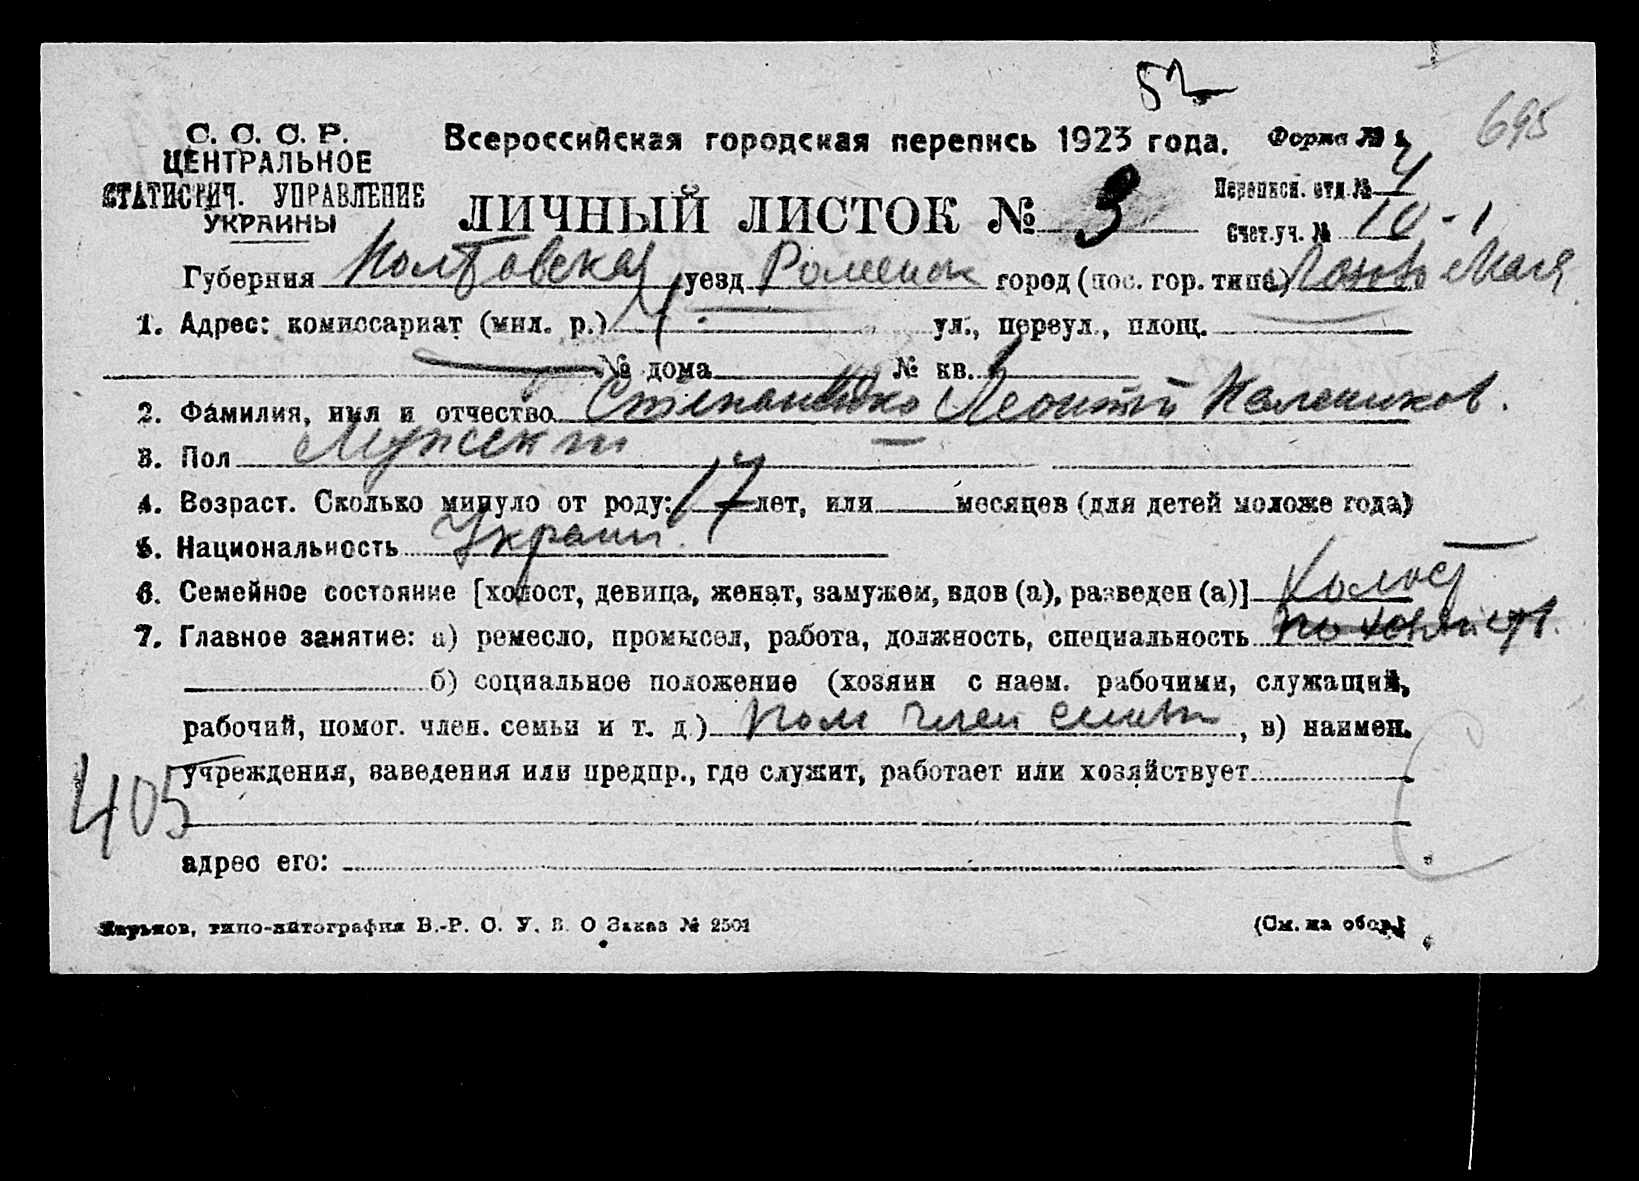 52
695
С. С. С. Р.
ЦЕНТРАЛЬНОЕ
СТАТИСТИЧ. УПРАВЛЕНИЕ
УКРАИНЫ
Всероссийская городская перепись 1923 года. Форма № 1
ЛИЧНЫЙ ЛИСТОК № 3
Переписн. отд. № 4
Счет. уч. № 10-1
Губерния Полтовская уезд Роменск город (пос. гор. типа)
1. Адрес: комиссариат (мил. р.) ул., переул., площ.
№ дома № кв.
2. Фамилия, имя и отчество Степаненко Леонтий
3. Пол Мужск
4. Возраст. Сколько минуло от роду: 17 лет, или месяцев (для детей моложе года)
5. Национальность Украин.
6. Семейное состояние [холост, девица, женат, замужем, вдов (а), разведен (а)] Холост
7. Главное занятие: а) ремесло, промысел, работа, должность, специальность по хозяйств.
б) социальное положение (хозяин с наем. рабочими, служащий,
рабочий, помог. член. семьи и т. д.) пом член семьи, в) наимен.
учреждения, заведения или предпр., где служит, работает или хозяйствует
405
адрес его:
Харьков, типо-литография В.-Р. С. У. В. О Заказ № 2501
(См. на обор.)